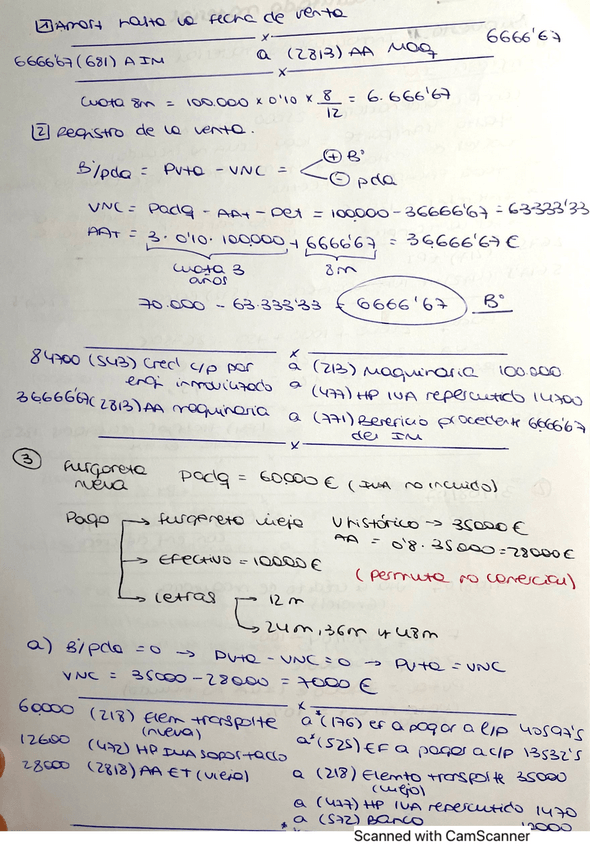 1 Amort hasta la fecha de venta
x
6666'67 (681) A IM a (2813) AA Maq 6666'67
x
Cuota 8m = 100.000 x 0'10 x 8/12 = 6.666'67
2 Registro de la venta.
B/pda = Pvta - VNC = + Bº
- pda
VNC = Padq - AAt - Det = 100.000 - 36666'67 = 63333'33
AAt = 3. 0'10. 100.000 + 6666'67 = 36.666'67 €
cuota 3 años 8m
70.000 - 63.333'33 = 6666'67 Bº
x
84700 (543) Cred c/p por a (213) Maquinaria 100.000
enaj inmovilizado a (477) HP IVA repercutido 14700
36.666'67 (2813) AA maquinaria a (771) Beneficio procedente 6.666'67
del IM
x
3 Furgoneta nueva Padq = 60.000 € (IVA no incluido)
Pago → furgoneta vieja V histórico → 35000 €
AA = 0'8. 35000 = 28000 €
→ Efectivo = 10000 € (permuta no comercial)
→ Letras → 12 m
→ 24m, 36m y 48m
a) B/pda = 0 → Pvta - VNC = 0 → Pvta = VNC
VNC = 35000 - 28000 = 7000 €
x
60.000 (218) Elem transporte a* (175) EF a pagar a l/p 40597'5
(nueva)
12600 (472) HP IVA soportado a* (525) EF a pagar a c/p 13532'5
28000 (2818) AA ET (viejo) a (218) Elemto transporte 35000
(viejo)
a (477) HP IVA repercutido 1470
a (572) Banco
Scanned with CamScanner